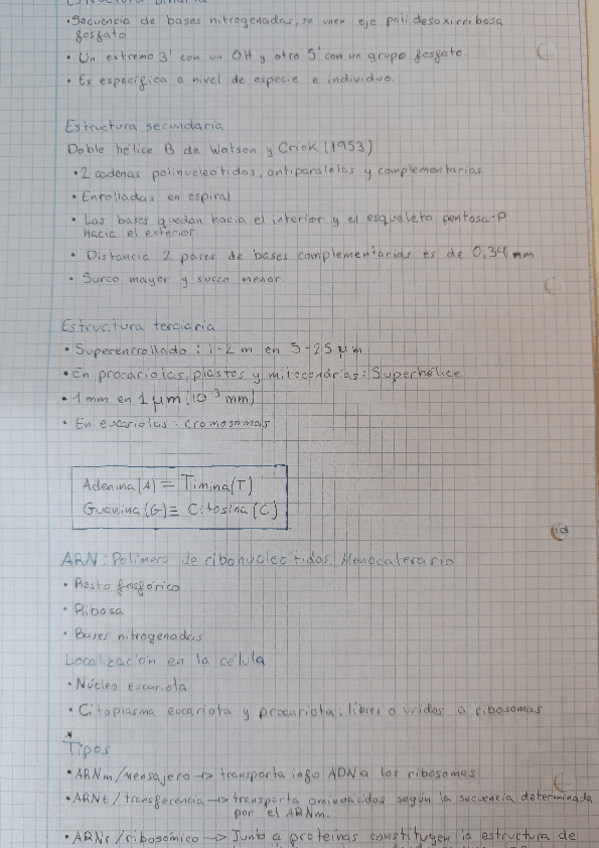 • Secuencia de bases nitrogenadas, se unen eje polidesoxirribosa
fosfato
• Un extremo 3' con un OH y otro 5' con un grupo fosfato
• Es específica a nivel de especie e individuo.
Estructura secundaria
Doble hélice B de Watson y Crick (1953)
• 2 cadenas polinucleotidos, antiparalelas y complementarias
• Enrolladas en espiral
• Las bases quedan hacia el interior y el esqueleto pentosa-P
hacia el exterior.
• Distancia 2 pares de bases complementarias es de 0,34 nm
• Surco mayor y surco menor.
Estructura terciaria
• Superenrollado: 1-2 m en 5-25 μm
• En procariotas, plastos y mitocondrias: Superhélice
• 1 mm en 1 μm (10⁻³ mm)
• En eucariotas: cromosomas
Adenina (A) = Timina (T)
Guanina (G) ≡ Citosina (C)
ARN: Polímero de ribonucleótidos. Monocatenario
• Resto fosfórico
• Ribosa
• Bases nitrogenadas
Localización en la célula
• Núcleo eucariota
• Citoplasma eucariota y procariota: libres o unidos a ribosomas
Tipos
• ARNm/mensajero -> transporta info ADN a los ribosomas
• ARNt/transferencia -> transporta aminoácidos según la secuencia determinada
por el ARNm.
• ARNr/ribosómico -> Junto a proteínas constituyen la estructura de